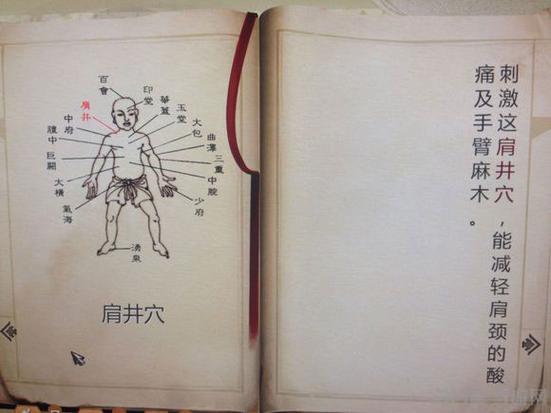 百會
印堂
華蓋
玉堂
大包
曲澤
三重
中脘
少府
肩井
中府
膻中
巨闕
大橫
氣海
湧泉
肩井穴
刺激这肩井穴，能减轻肩颈的酸
痛及手臂麻木。